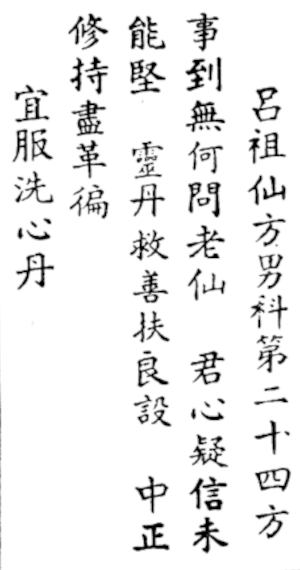 呂祖仙方男科第二十四方
事到無何問老仙　君心疑信未
能堅　靈丹救善扶良設　中正
修持盡革徧
宜服洗心丹